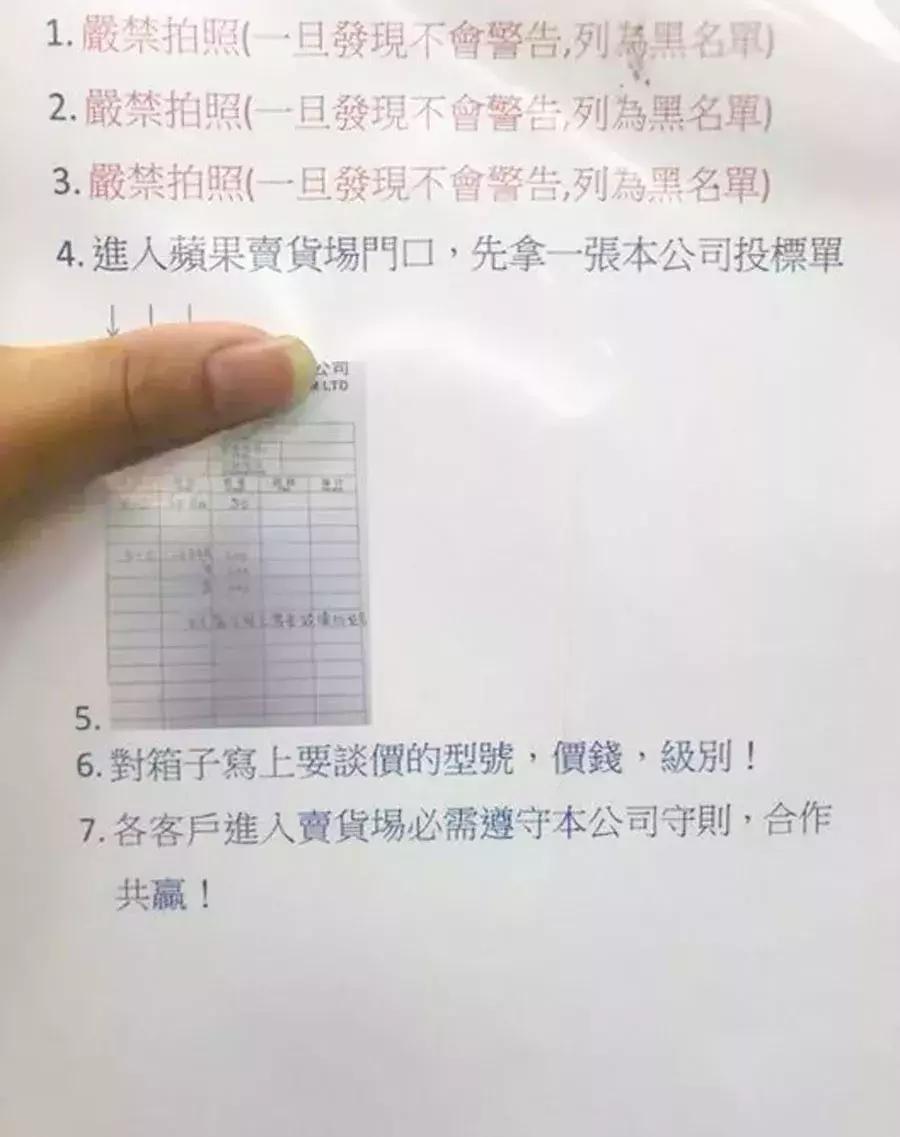 1. 嚴禁拍照(一旦發現不會警告,列為黑名單)
2. 嚴禁拍照(一旦發現不會警告,列為黑名單)
3. 嚴禁拍照(一旦發現不會警告,列為黑名單)
4. 進入蘋果賣貨場門口，先拿一張本公司投標單
公司
LTD
5.
6. 對箱子寫上要談價的型號，價錢，級別！
7. 各客戶進入賣貨場必需遵守本公司守則，合作
共贏！